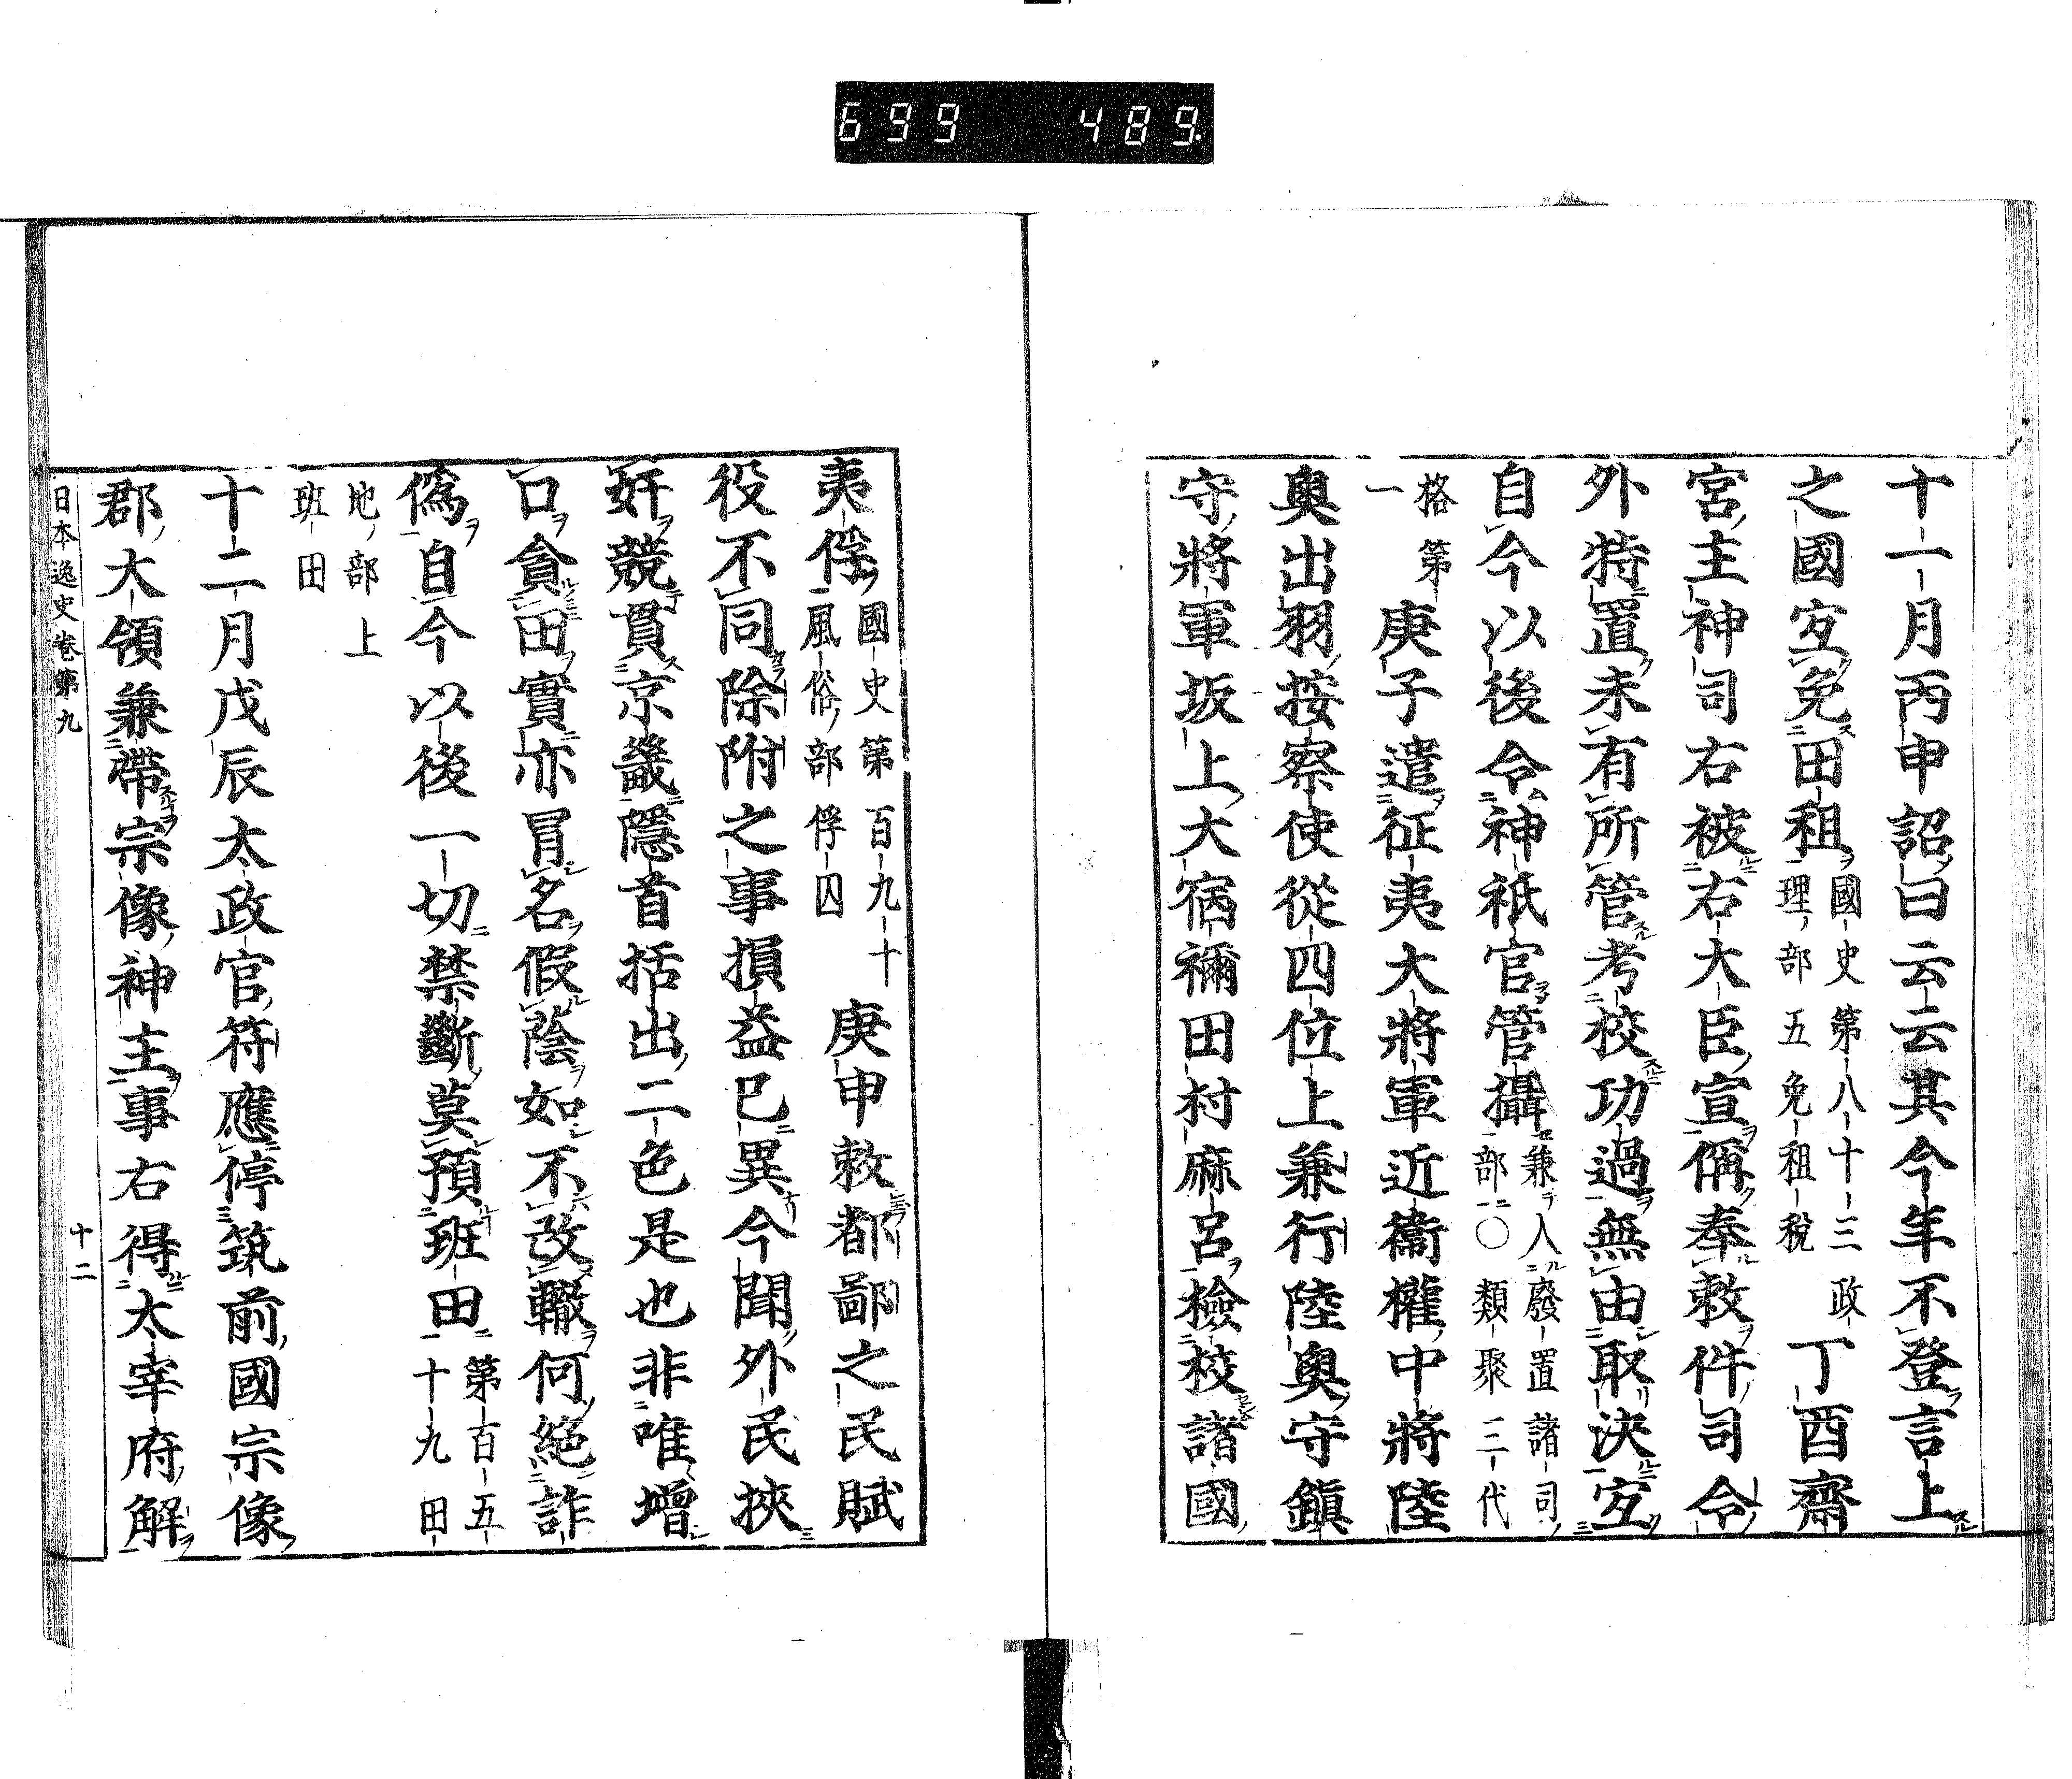 699 489
十一月丙申詔曰云云其今年不登言上
之國宐免田租國史第八十三政
理部五免租税丁酉齋
宮主神司右被右大臣宣偁奉敕件司令
外特置未有所管考校功過無由取決宐
自今以後令神祇官管攝兼入廢置諸司
部〇類聚三代
格第
一庚子遣征夷大將軍近衞權中將陸
奥出羽按察使從四位上兼行陸奥守鎮
守將軍坂上大宿禰田村麻呂檢校諸國
夷俘國史第百九十
風俗部俘囚庚申敕都鄙之民賦
役不同除附之事損益已異今聞外民挾
奸競貫京畿隱首括出二色是也非唯増
口貪田實亦冒名假蔭如不改轍何絕詐
僞自今以後一切禁斷莫預班田第百五
十九田
地部上
班田
十二月戊辰太政官符應停筑前國宗像
郡大領兼帶宗像神主事右得太宰府解
日本逸史卷第九 十二